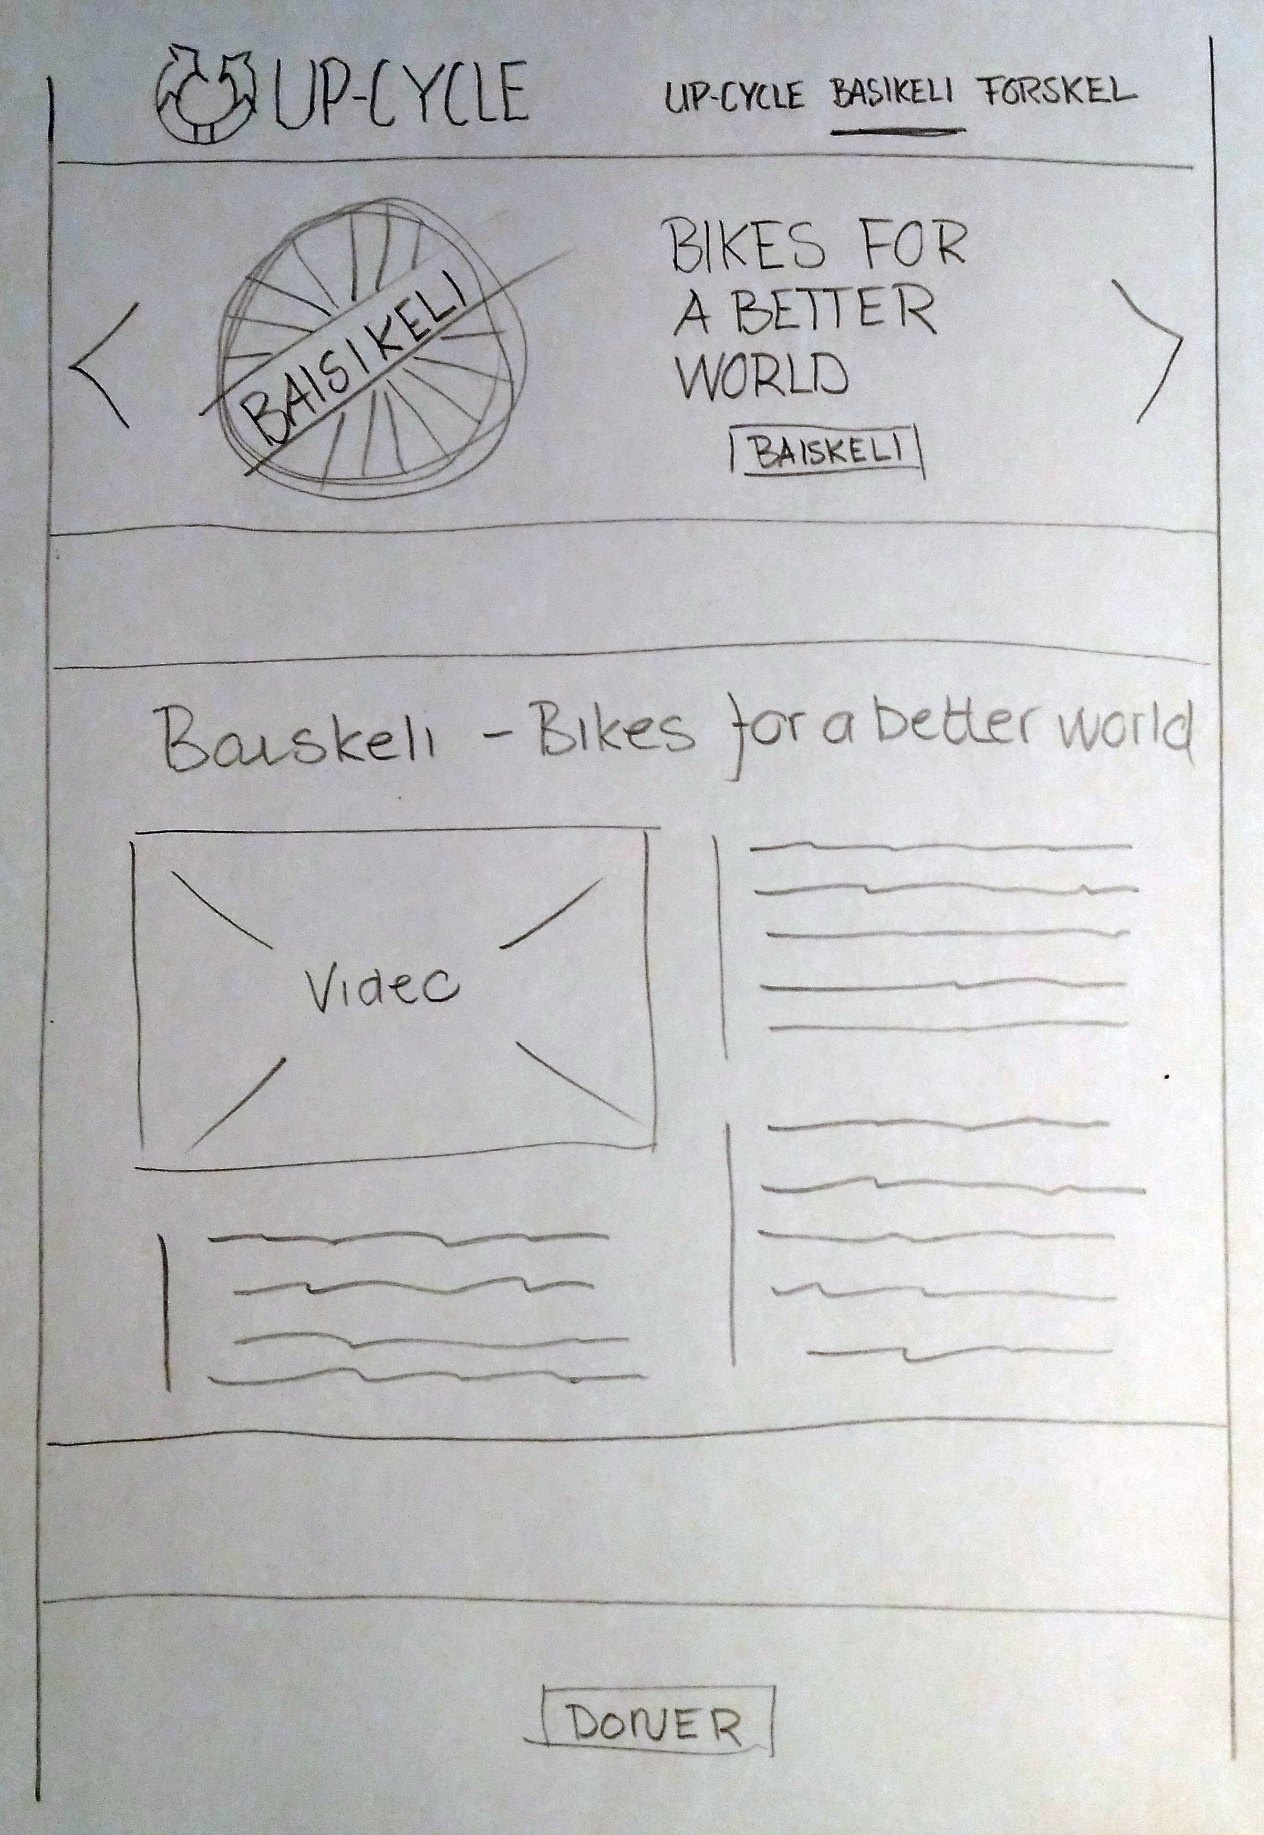 UP-CYCLE
UP-CYCLE BASIKELI FORSKEL
BAISIKELI
BIKES FOR
A BETTER
WORLD
BAISKELI
Baiskeli - Bikes for a better world
Video
DONER